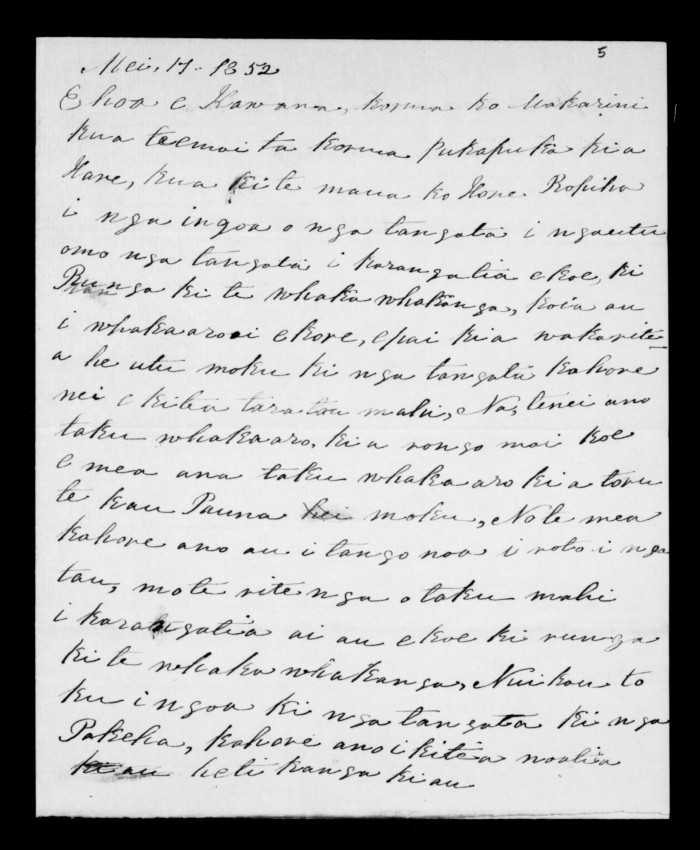 5
Mei, 17. 1852
E hoa e Kawana, korua ko Makarini
kua tae mai ta korua pukapuka kia
Hare, kua kite maua ko Hone Ropiha
i nga ingoa o nga tangata i nga utu
omo nga tangata i karangatia e koe, ki
Runga ki te whakawhakanga, koia au
i whakaaro ai ekore, epai kia wakarite-
a he utu moku ki nga tangata kahore
nei e kitea taratou mahi, Na, tenei ano
taku whakaaro, kia rongo mai koe
e mea ana taku whakaaro kia toru
te kau Pauna hei moku, No te mea
kahore ano au i tango noa i roto i nga
tau, mo te ritenga o taku mahi
i karangatia ai au e koe ki runga
ki te whakawhakanga, Nui kau to
ku ingoa ki nga tangata ki nga
Pakeha, kahore ano i kitea noatia
ki au hetikanga ki au